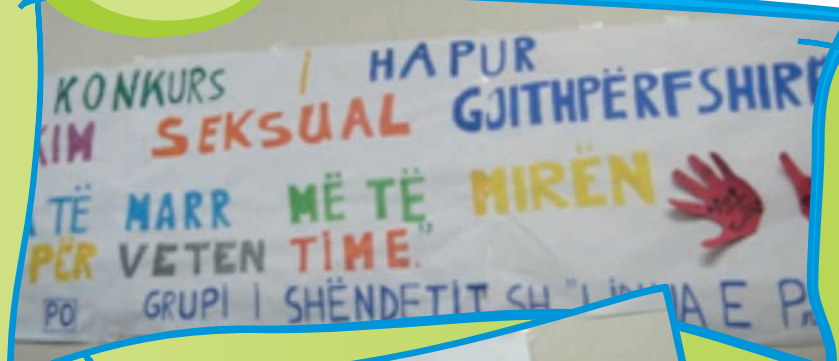 KONKURS I HAPUR
SEKSUAL GJITHPËRFSHIRË
TË MARR MË TË MIRËN
PËR VETEN TIME."
PO GRUPI I SHËNDETIT SH "
E